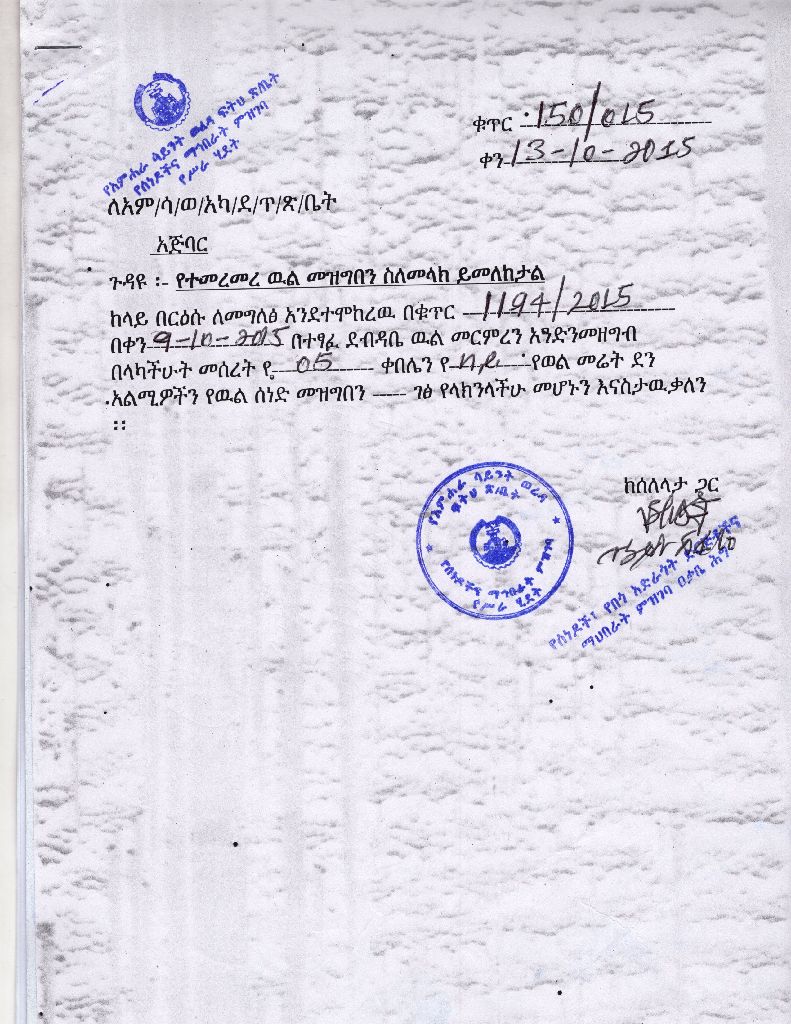 የአምሐራ ሳይንት ወረዳ ፍትህ ጽ/ቤት
የሰነዶችና ማኅበራት ምዝገባ
የሥራ ሂደት
ቁጥር 150/015
ቀን 13-10-2015
ለአም/ሳ/ወ/አካ/ደ/ጥ/ጽ/ቤት
አጅባር
ጉዳዩ ፡- የተመረመረ ዉል መዝግበን ስለመላክ ይመለከታል
ከላይ በርዕሱ ለመግለፅ እንደተሞከረዉ በቁጥር 1194/2015
በቀን 9-10-2015 በተፃፈ ደብዳቤ ዉል መርምረን እንድንመዘግብ
በላካችሁት መሰረት የ 05 ቀበሌን የ የወል መሬት ደን
አልሚዎችን የዉል ሰነድ መዝግበን ----- ገፅ የላክንላችሁ መሆኑን እናስታዉቃለን
፡፡
ከሰላታ ጋር
የአምሐራ ሳይንት ወረዳ
ፍትህ ጽ/ቤት
የሰነዶችና ማኅበራት ምዝገባ
የሥራ ሂደት
የሰነዶችና የበጎ አድራጎት ድርጅቶችና
ማህበራት ምዝገባ ዐቃቤ ሕግ